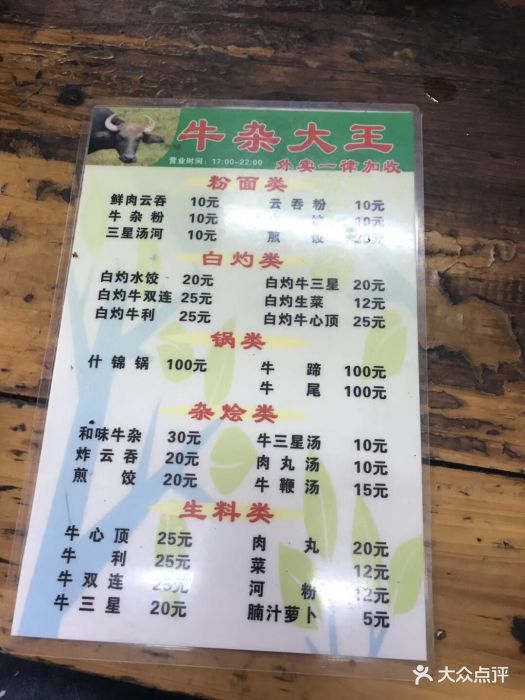 牛杂大王
营业时间：17:00-22:00 外卖一律加收
粉面类
鲜肉云吞 10元 云吞粉 10元
牛杂粉 10元 饺 10元
三星汤河 10元 煎饺 20元
白灼类
白灼水饺 20元 白灼牛三星 20元
白灼牛双连 25元 白灼生菜 12元
白灼牛利 25元 白灼牛心顶 25元
锅类
什锦锅 100元 牛蹄 100元
牛尾 100元
杂烩类
和味牛杂 30元 牛三星汤 10元
炸云吞 20元 肉丸汤 10元
煎饺 20元 牛鞭汤 15元
生料类
牛心顶 25元 肉丸 20元
牛利 25元 菜 12元
牛双连 25元 河粉 12元
牛三星 20元 腩汁萝卜 5元
大众点评